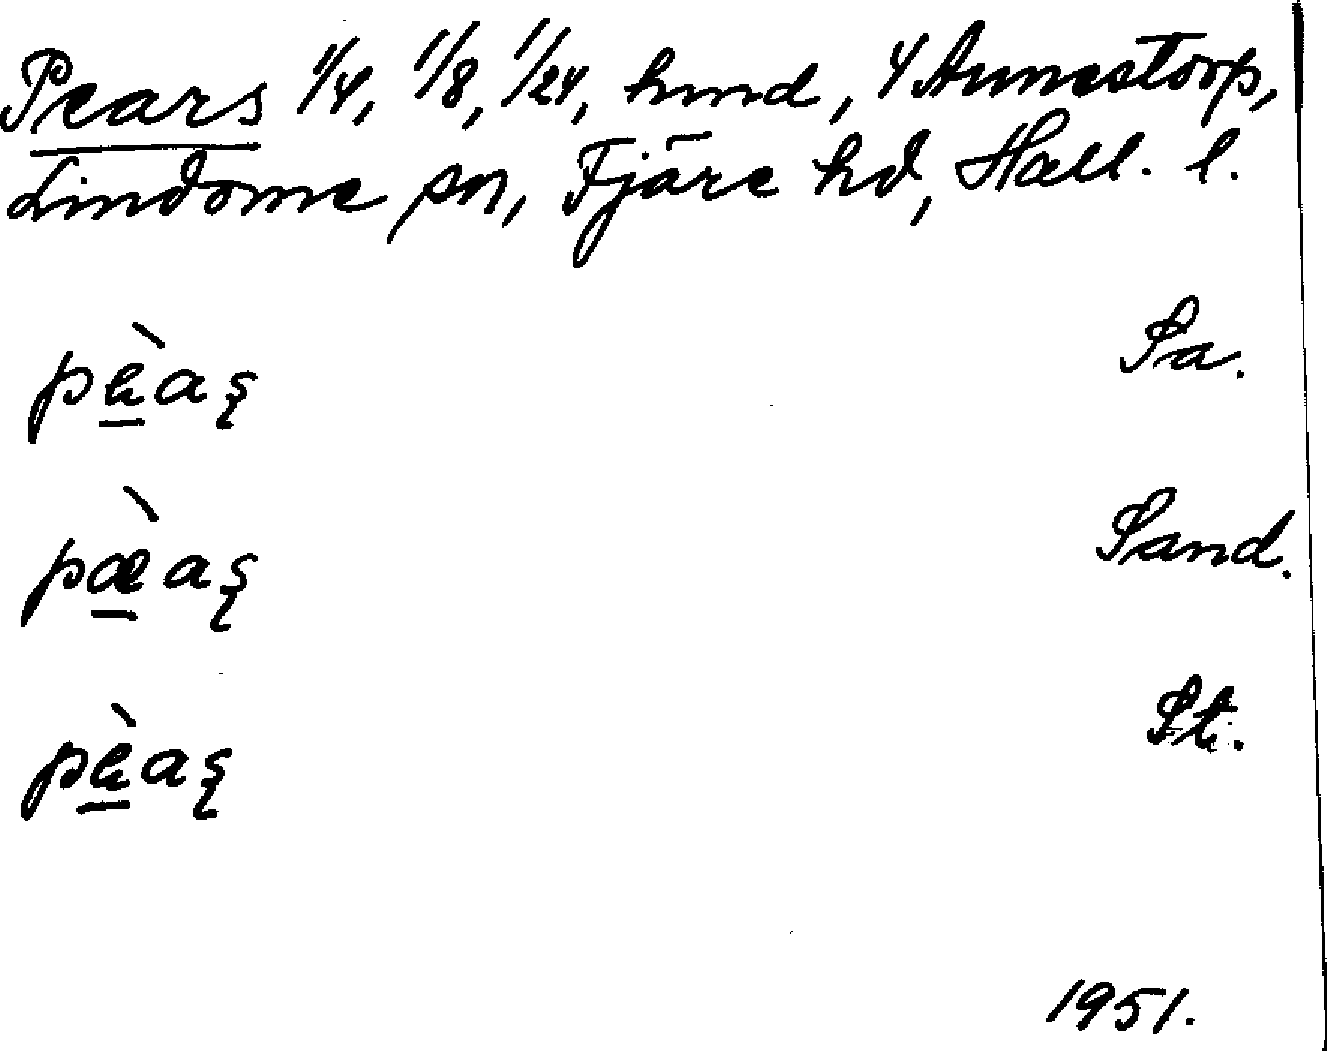 Pears 1/4, 1/8, 1/24, hmd, 4 Annestorp,
Lindome sn, Fjäre hd, Hall. l.
pè̱aş Sa.
pæ̱̀aş Sand.
pè̱aş St.
1951.